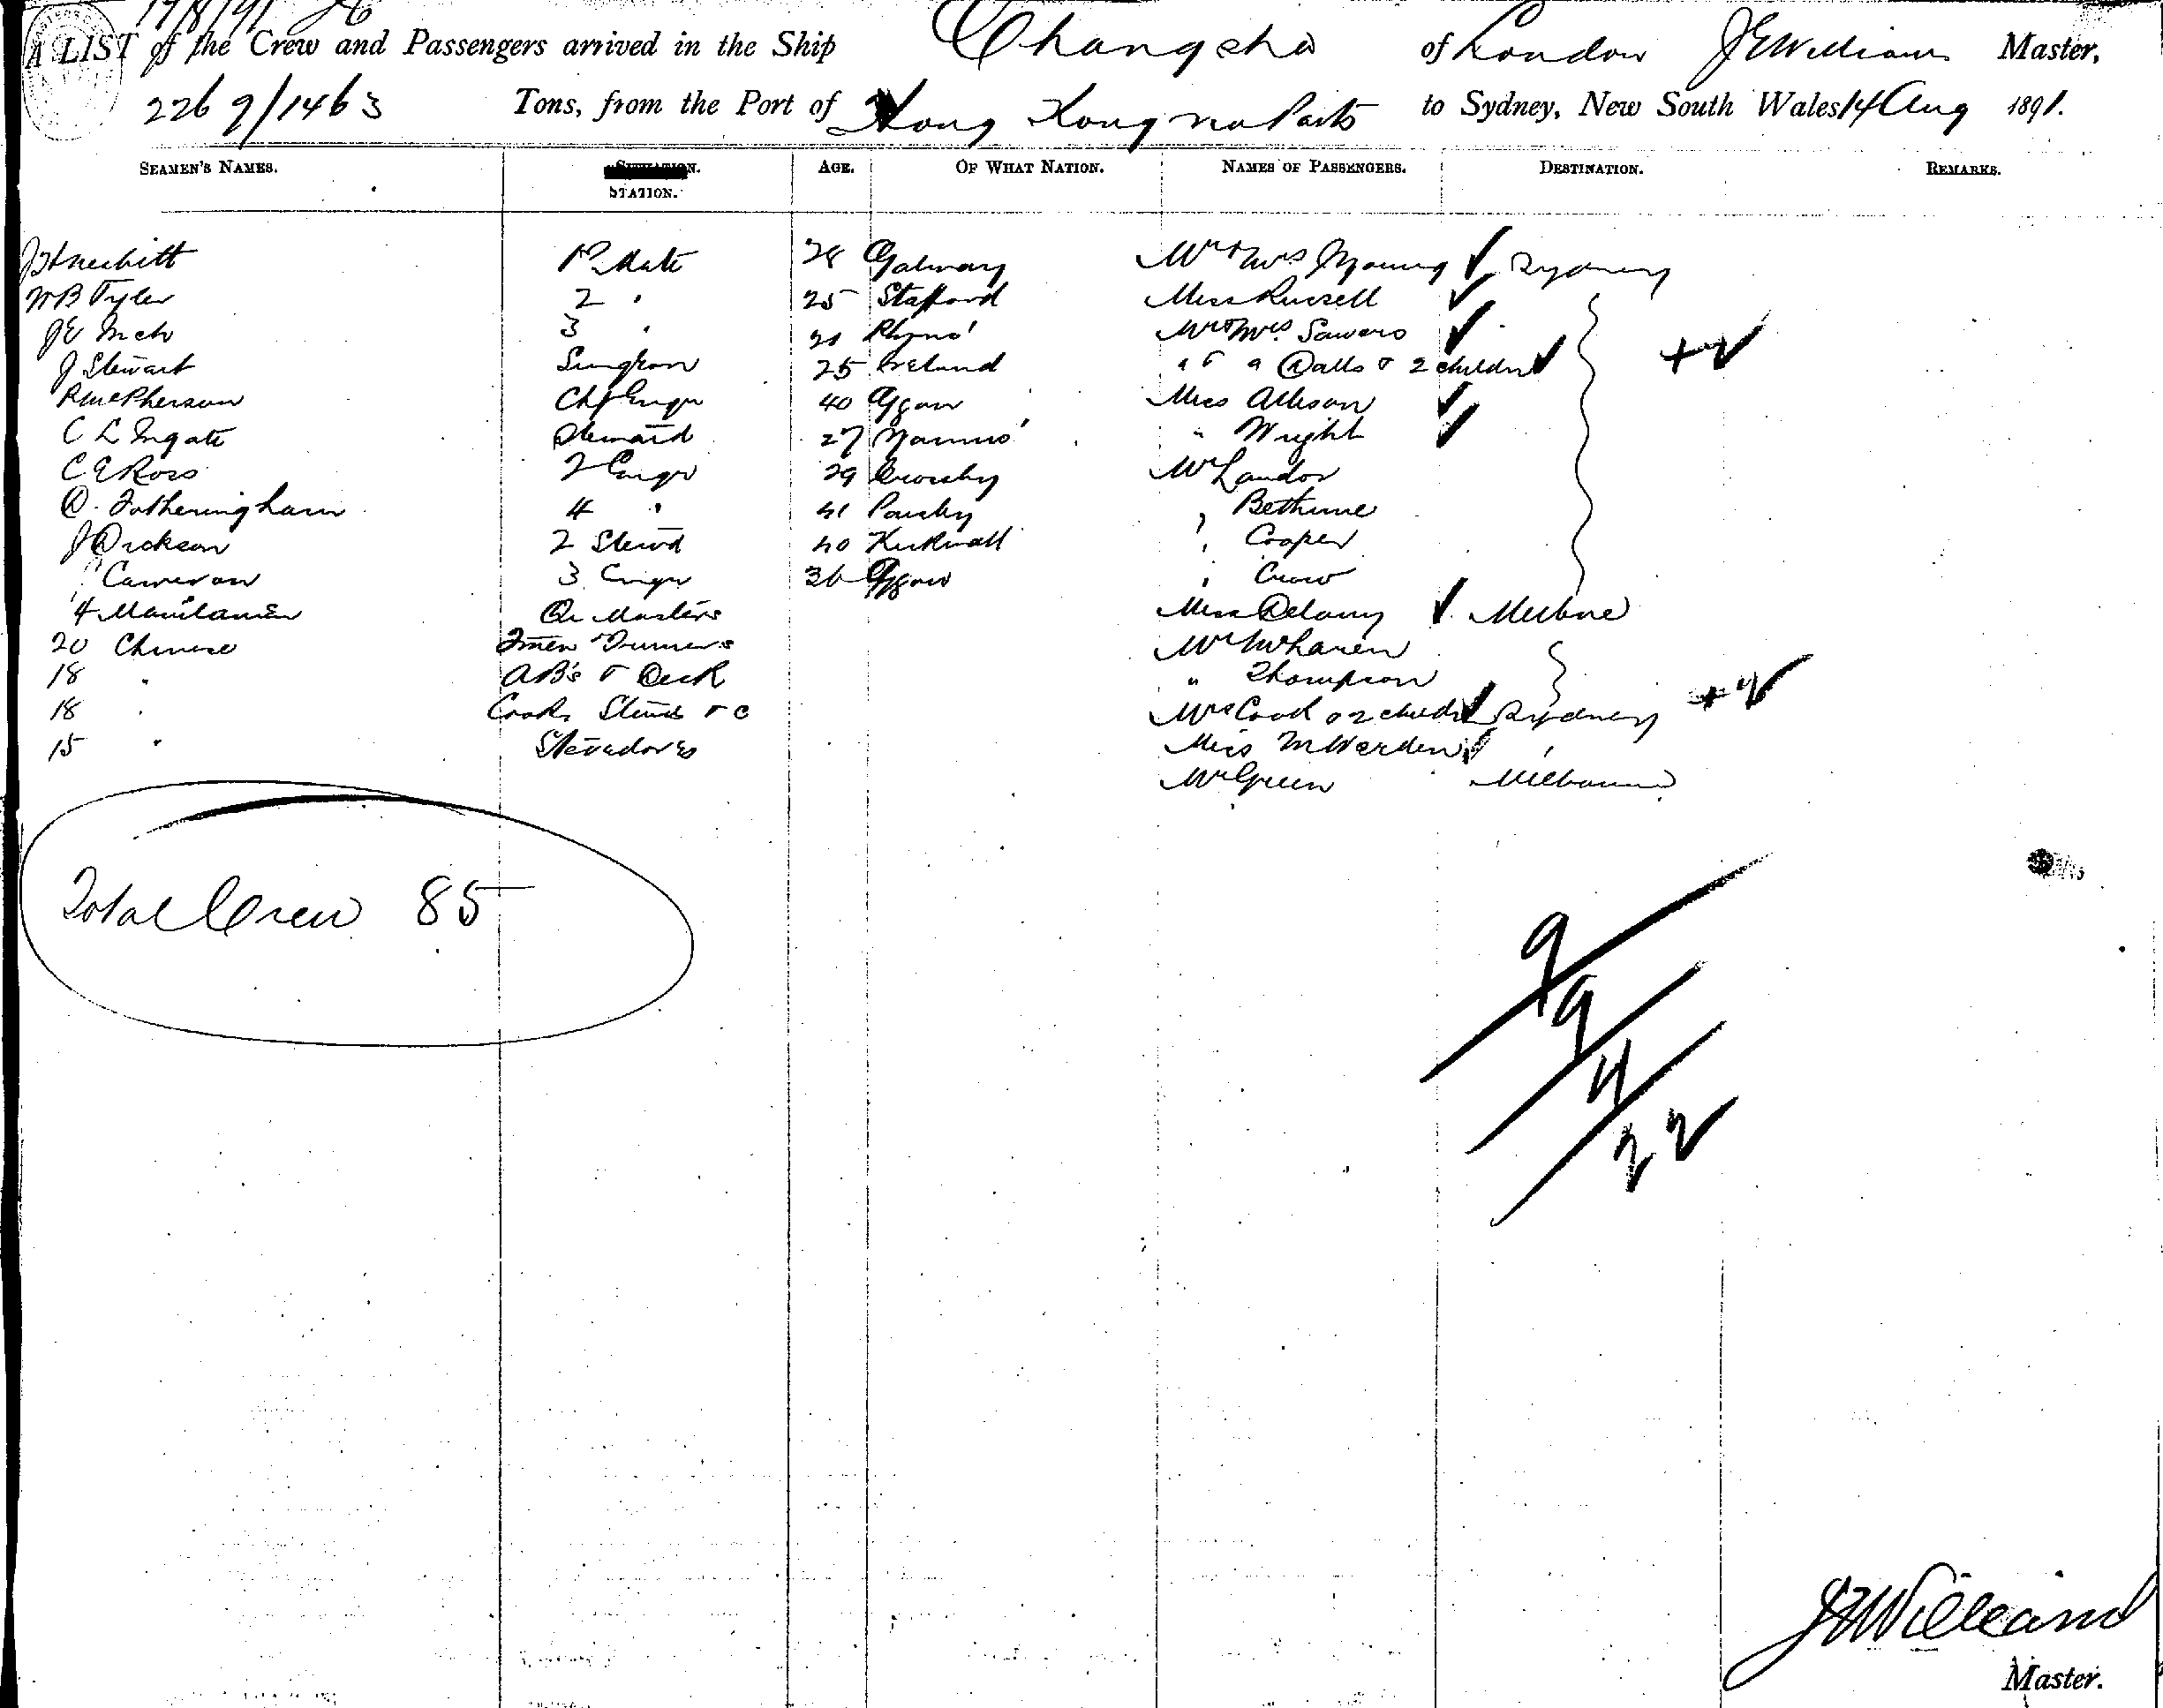 17/8/91
A LIST of the Crew and Passengers arrived in the Ship Changsha of London J E Williams Master,
2269/1463 Tons, from the Port of Hong Kong via Ports to Sydney, New South Wales 14 Aug 1891.
SEAMEN'S NAMES. STATION. AGE. OF WHAT NATION. NAMES OF PASSENGERS. DESTINATION. REMARKS.
J H Nesbitt 1st Mate 28 Galway Mr & Mrs Young Sydney
W B Tyler 2 " 25 Stafford Miss Russell
J E Inch 3 " Mr & Mrs Sawers
J Stewart Surgeon 25 Ireland " & " Dalls & 2 children
R McPherson Chf Engr 40 Glgow Miss Allison
C L Ingate Steward 27 " Wright
C E Ross 2 Engr 29 Crosby Mr Landor
D. Fotheringham 4 " Paisley " Bethune
J Dickson 2 Stewd 40 Kirkwall " Cooper
" Cameron 3 Engr 36 Glgow " Crow
4 Manilamen Qr Masters Miss Delany Melbne
20 Chinese Fmen Trimmers Mr McLaren
18 " AB's & Deck " Thompson
18 " Cooks Stewds &c Mrs Cook & 2 childn Sydney
15 " Stevadores Miss McWerden "
Mr Green Melbourne
Total Crew 85
9
9
4
22
J E Williams
Master.